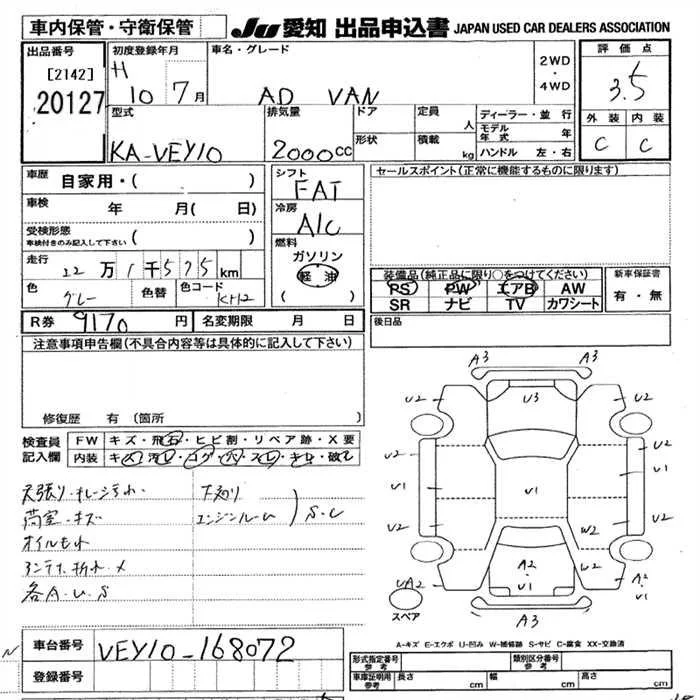 車内保管・守衛保管
JU 愛知 出品申込書 JAPAN USED CAR DEALERS ASSOCIATION
出品番号
[2142]
20127
初度登録年月
H 10 7月
車名・グレード
AD VAN
2WD
・
4WD
評価点
3.5
外装 内装
C C
型式
KA-VEY10
排気量
2000cc
ドア
形状
定員 人
積載 kg
ディーラー・並行
モデル年式 年
ハンドル 左・右
車歴 自家用・( )
車検 年 月( 日)
受検形態
車検付きのみ記入して下さい ( )
走行 22万1千575km
色 グレー 色替 色コード KH2
シフト
FAT
冷房
A/C
燃料
ガソリン
軽油
( )
セールスポイント(正常に機能するものに限ります)
装備品(純正品に限り○をつけてください)
PS PW エアB AW
SR ナビ TV カワシート
新車保証書
有・無
R券 9170円 名変期限 月 日
後日品
注意事項申告欄(不具合内容等は具体的に記入して下さい)
修復歴 有 (箇所 )
検査員記入欄
FW キズ・飛石・ヒビ割・リペア跡・X要
内装 キズ・汚レ・コゲ・穴・スレ・キレ・破レ
荷室・キズ
エンジンルーム
S・C
オイルもれ
アンテナ折れ・メ
各A・U・S
A3 A3
U2 U3 U2
U2 U2
U1 U1 U1
U2 W2 U2
A2 U1
A2 U1
UA2
スペア
A3
A-キズ E-エクボ U-凹み W-補修跡 S-サビ C-腐食 XX-交換済
車台番号 VEY10-168072
登録番号
形式指定番号 参考
類別区分番号 参考
車庫証明用 参考 長さ cm 幅 cm 高さ cm